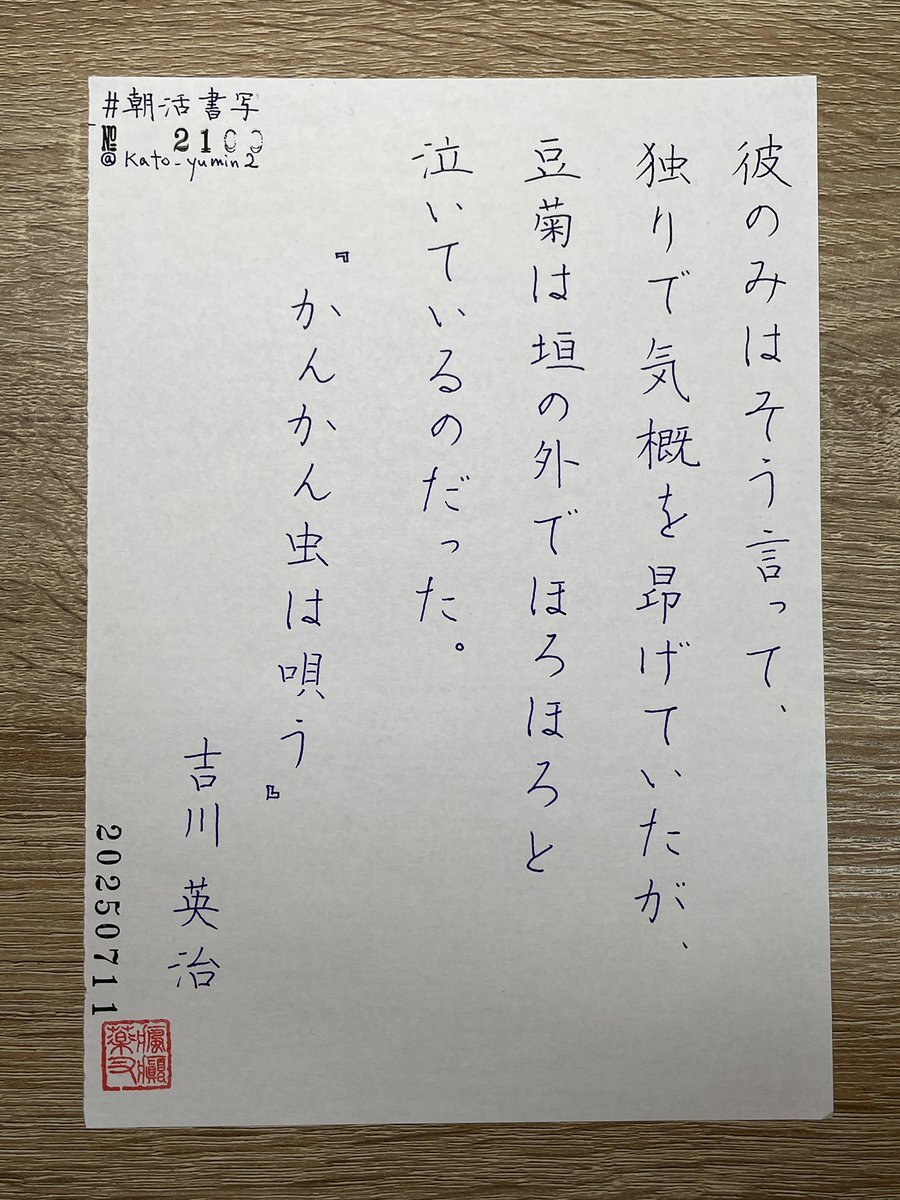 #朝活書写
№ 2100
@kato_yumin2
彼のみはそう言って、
独りで気概を昂げていたが、
豆菊は垣の外でほろほろと
泣いているのだった。
『かんかん虫は唄う』
吉川英治
20250711